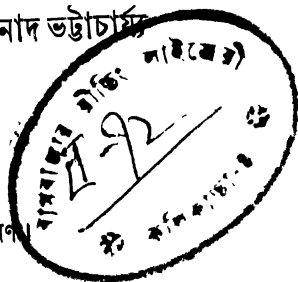 নাদ ভট্টাচার্য্য
বাগবাজার রীডিং লাইব্রেরী
কলিকাতা-৪